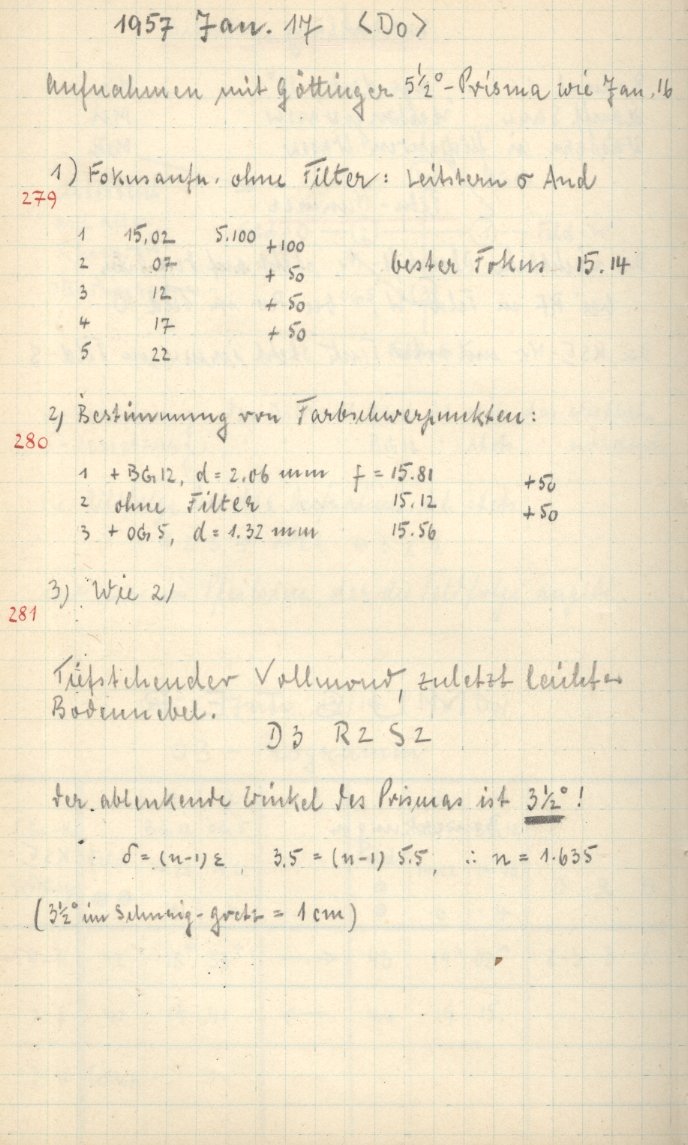 1957 Jan. 17 <Do>
Aufnahmen mit Göttinger 5½°-Prisma wie Jan. 16
1) Fokusaufn. ohne Filter: Leitstern σ And
279
1 15,02 5.100 +100
2 07 +50
bester Fokus 15.14
3 12 +50
4 17 +50
5 22
2) Bestimmung von Farbschwerpunkten:
280
1 + BG12, d = 2.06 mm f = 15.81 +50
2 ohne Filter 15.12 +50
3 + OG5, d = 1.32 mm 15.56
3) Wie 2)
281
Tiefstehender Vollmond, zuletzt leichter
Bodennebel.
D3 R2 S2
Der ablenkende Winkel des Prismas ist 3½°!
δ = (n-1) ε, 3.5 = (n-1) 5.5, ∴ n = 1.635
(3½° im = 1 cm)